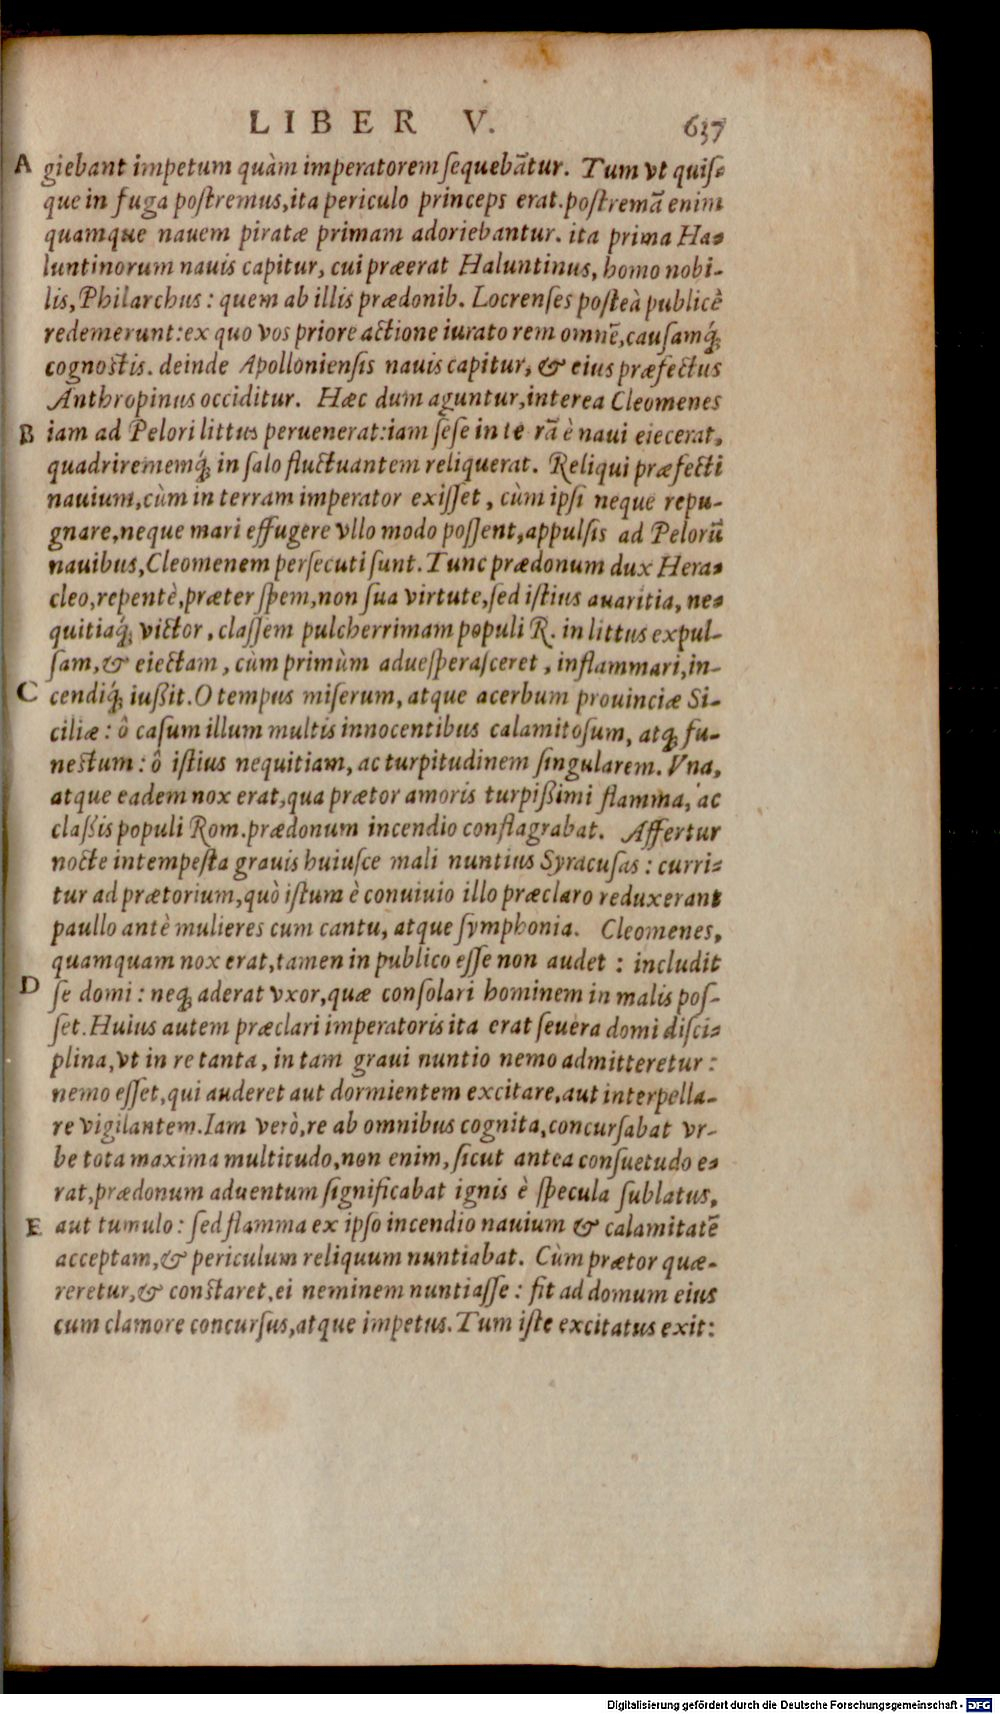 LIBER V. 637
A giebant impetum quàm imperatorem ſequebãtur. Tum vt quiſ-
que in fuga poſtremus, ita periculo princeps erat. poſtremã enim
quamque nauem piratæ primam adoriebantur. ita prima Ha-
luntinorum nauis capitur, cui præerat Haluntinus, homo nobi-
lis, Philarchus: quem ab illis prædonib. Locrenſes poſteà publicè
redemerunt: ex quo vos priore actione iurato rem omnẽ, cauſamq́;
cognoſtis. deinde Apollonienſis nauis capitur, & eius præfectus
Anthropinus occiditur. Hæc dum aguntur, interea Cleomenes
B iam ad Pelori littus peruenerat: iam ſeſe in te rã è naui eiecerat,
quadrirememq́; in ſalo fluctuantem reliquerat. Reliqui præfecti
nauium, cùm in terram imperator exiſſet, cùm ipſi neque repu-
gnare, neque mari effugere vllo modo poſſent, appulſis ad Pelorũ
nauibus, Cleomenem perſecuti ſunt. Tunc prædonum dux Hera-
cleo, repentè, præter ſpem, non ſua virtute, ſed iſtius auaritia, ne-
quitiaq́; victor, claſſem pulcherrimam populi R. in littus expul-
ſam, & eiectam, cùm primùm adueſperaſceret, inflammari, in-
C cendiq́; iußit. O tempus miſerum, atque acerbum prouinciæ Si-
ciliæ: ô caſum illum multis innocentibus calamitoſum, atq; fu-
neſtum: ô iſtius nequitiam, ac turpitudinem ſingularem. Vna,
atque eadem nox erat, qua prætor amoris turpißimi flamma, ac
claßis populi Rom. prædonum incendio conflagrabat. Affertur
nocte intempeſta grauis huiuſce mali nuntius Syracuſas: curri-
tur ad prætorium, quò iſtum è conuiuio illo præclaro reduxerant
paullo antè mulieres cum cantu, atque ſymphonia. Cleomenes,
quamquam nox erat, tamen in publico eſſe non audet: includit
D ſe domi: neq; aderat vxor, quæ conſolari hominem in malis poſ-
ſet. Huius autem præclari imperatoris ita erat ſeuera domi diſci-
plina, vt in re tanta, in tam graui nuntio nemo admitteretur:
nemo eſſet, qui auderet aut dormientem excitare, aut interpella-
re vigilantem. Iam verò, re ab omnibus cognita, concurſabat vr-
be tota maxima multitudo, non enim, ſicut antea conſuetudo e-
rat, prædonum aduentum ſignificabat ignis è ſpecula ſublatus,
E aut tumulo: ſed flamma ex ipſo incendio nauium & calamitatẽ
acceptam, & periculum reliquum nuntiabat. Cùm prætor quæ-
reretur, & conſtaret, ei neminem nuntiaſſe: fit ad domum eius
cum clamore concurſus, atque impetus. Tum iſte excitatus exit:
Digitalisierung gefördert durch die Deutsche Forschungsgemeinschaft - DFG